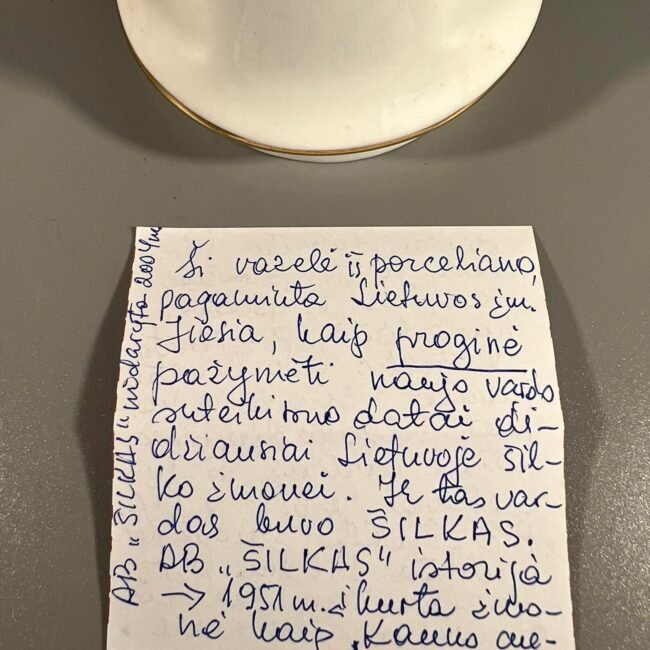 Ši vazelė iš porceliano,
pagaminta Lietuvos įm.
Jiesia, kaip proginė
pažymėti naujo vardo
suteikimo datai di-
džiausiai Lietuvoje šil-
ko įmonei. Ir tas var-
das buvo ŠILKAS.
AB „ŠILKAS" istorija
→ 1951 m. įkurta įmo-
nė kaip „Kauno me-
AB „ŠILKAS" uždaryta 2004 m.